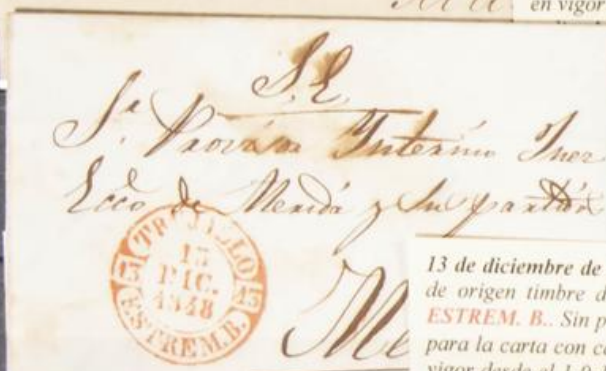 en vigor
S. E.
Sr. Provisor Interino Juez
Ecco de Merida y su partido
TRUJILLO
13
DIC.
1848
ESTREM.B.
Me
13 de diciembre de
de origen timbre d
ESTREM. B.. Sin p
para la carta con ca
vigor desde el 1-9-